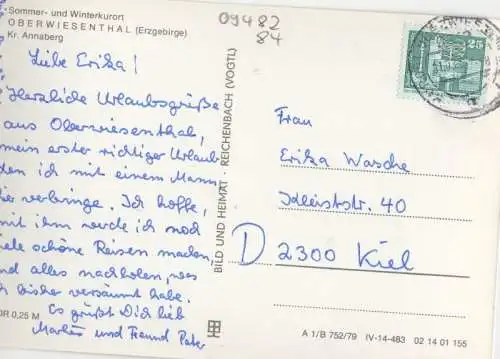 Sommer- und Winterkurort
OBERWIESENTHAL (Erzgebirge)
Kr. Annaberg
09482
84
25
Liebe Erika!
Herzliche Urlaubsgrüße
aus Oberwiesenthal,
mein erster richtiger Urlaub
den ich mit einem Mann
hier verbringe. Ich hoffe,
mit ihm werde ich noch
viele schöne Reisen machen,
und alles nachholen, was
ich bisher versäumt habe.
Es grüßt Dich lieb
und Freund Peter
BILD UND HEIMAT · REICHENBACH (VOGTL)
Frau
Erika Wasche
Kleiststr. 40
D 2300 Kiel
DR 0,25 M
A 1/B 752/79 IV-14-483 02 14 01 155